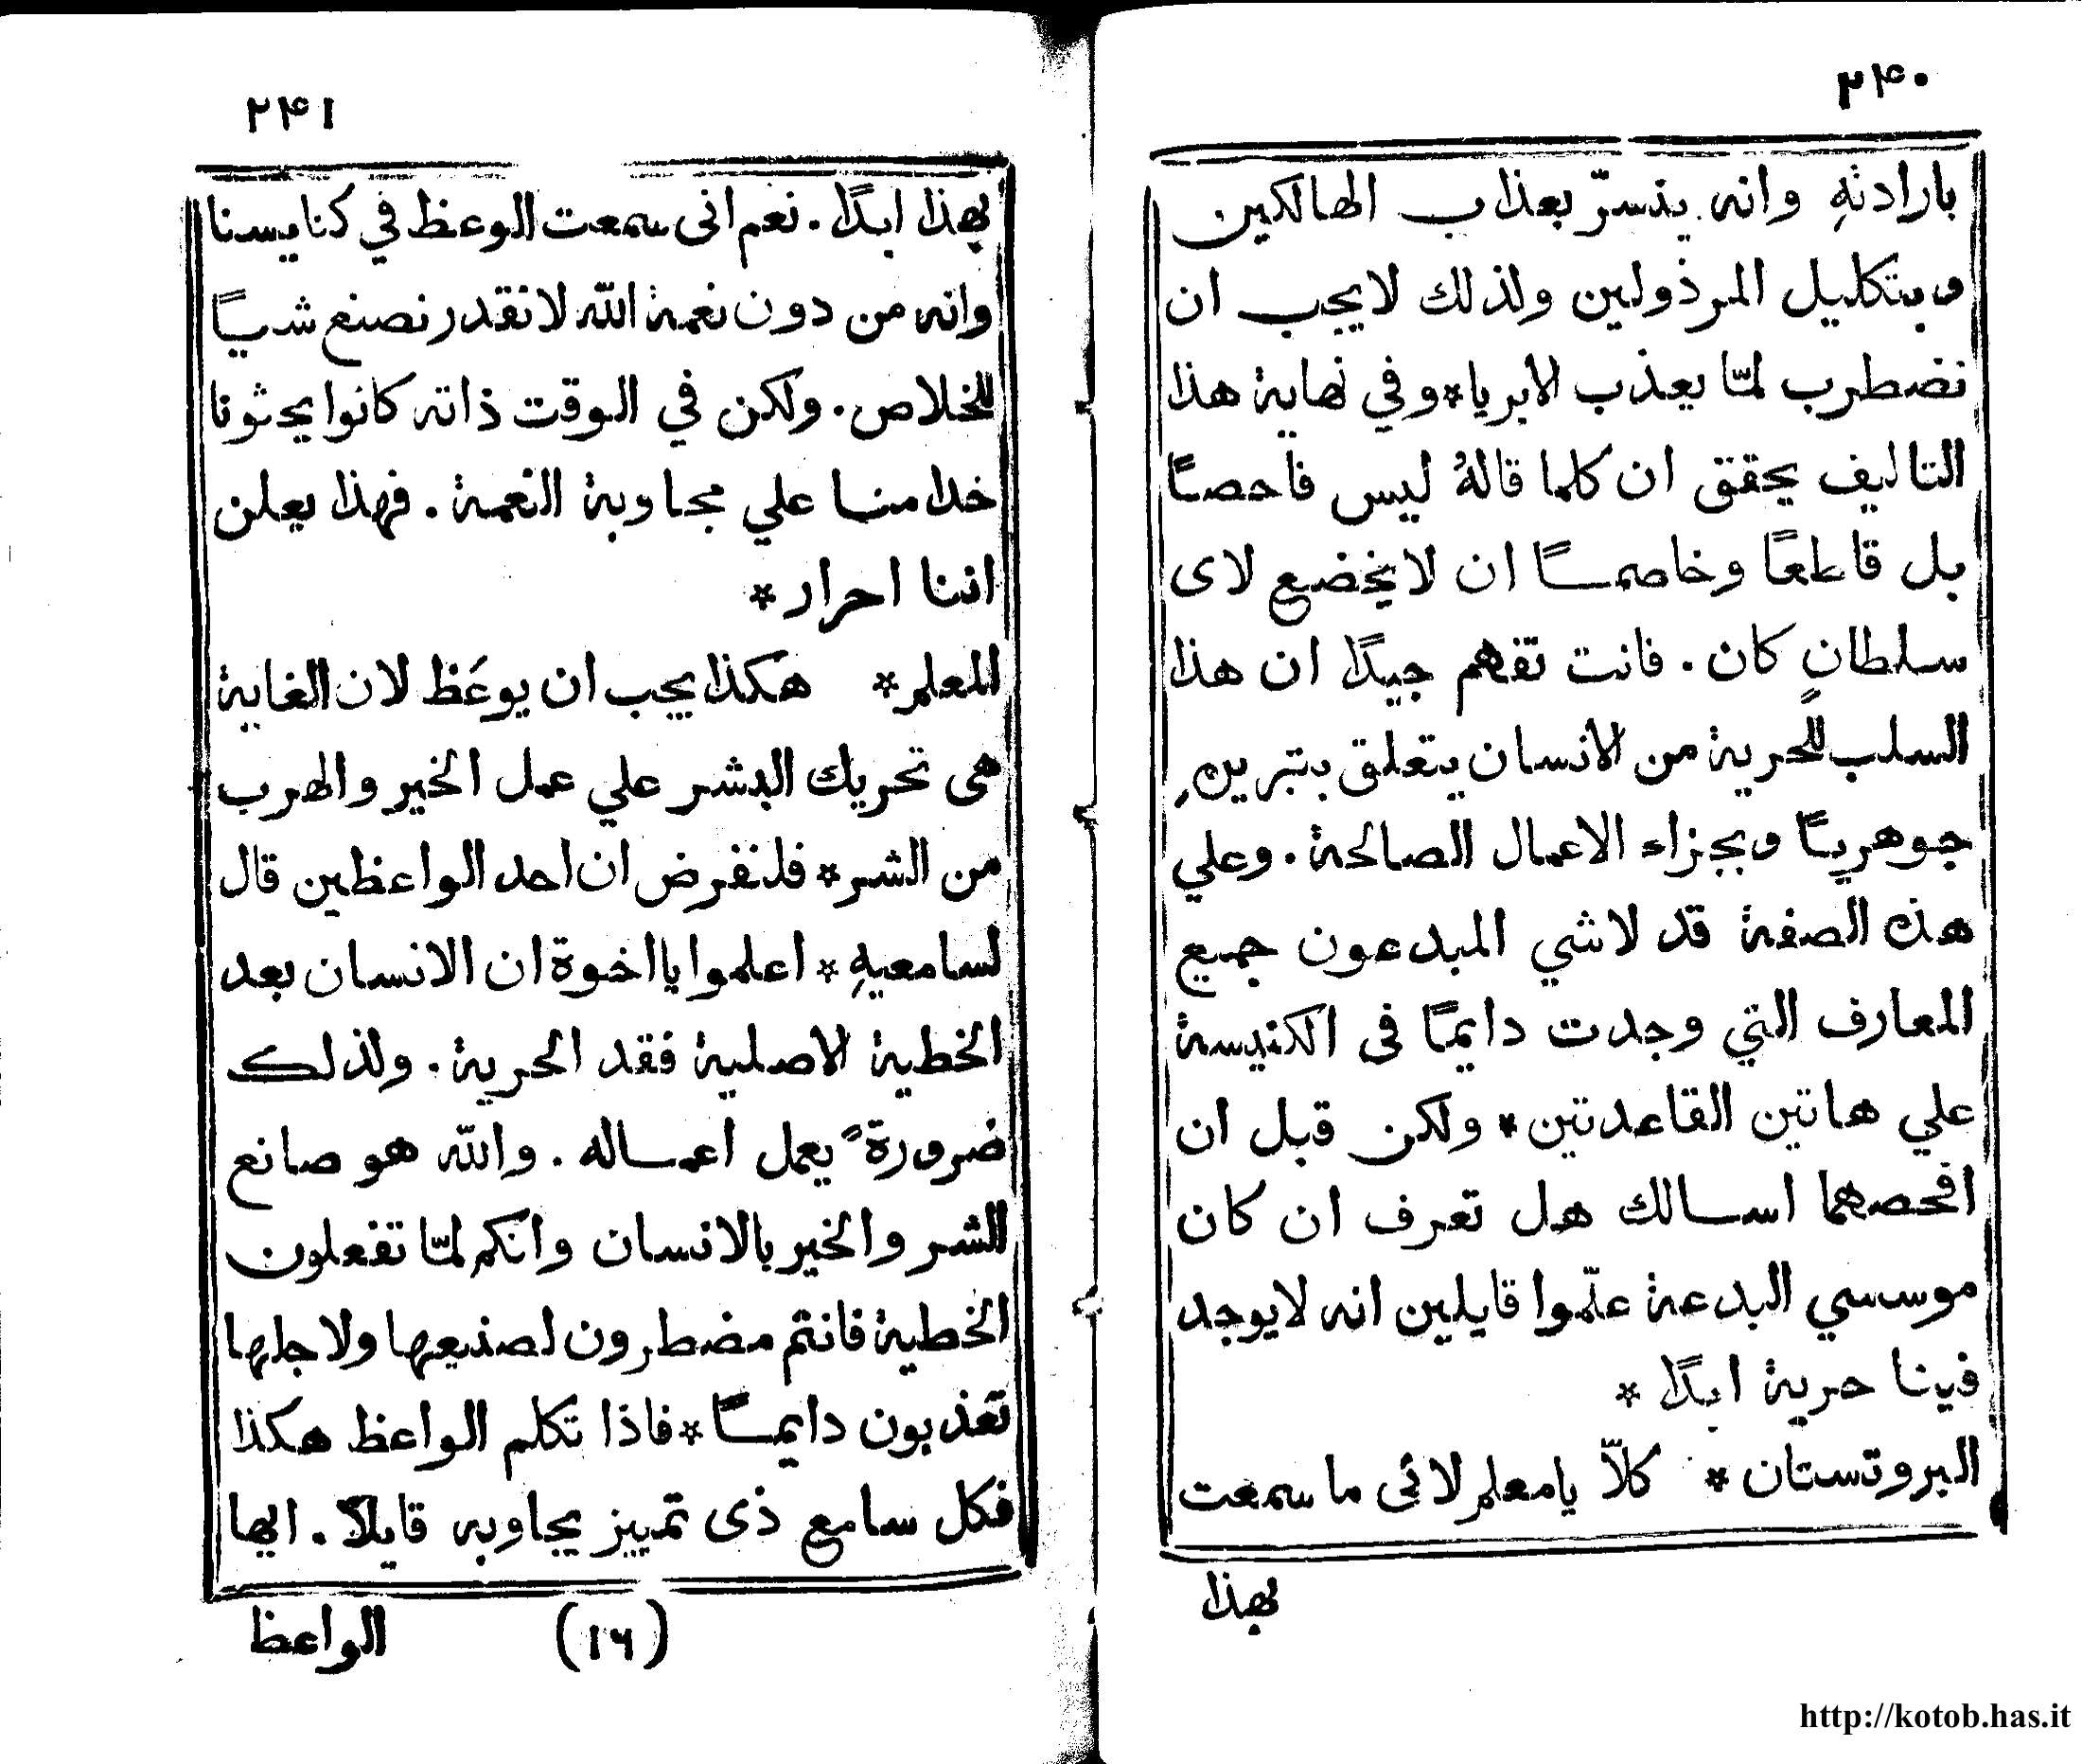 ۲۴۰
بارادتهِ وانه يتسرّ بعذاب الهالكين
وبتكليل المرذولين ولذلك لايجب ان
نضطرب لمّا يعذب الابريا* وفي نهاية هذا
التاليف يحقق ان كلما قالهُ ليس فاحصًا
بل قاطعًا وخاصمًا ان لايخضع لاى
سلطانٍ كان. فانت تفهم جيدًا ان هذا
السلب للحرية من الانسان يتعلق بتبريرهِ
جوهريًا وبجزاء الاعمال الصالحة. وعلي
هذه الصفة قد لاشي المبدعون جميع
المعارف التي وجدت دايمًا فى الكنيسة
علي هاتين القاعدتين* ولكن قبل ان
افحصهما اسالك هل تعرف ان كان
موسسي البدعة علّموا قايلين انه لايوجد
فينا حرية ابدًا *
البروتستان * كلّا يامعلم لانى ما سمعت
بهذا
۲۴۱
بهذا ابدًا. نعم انى سمعت الوعظ في كنايسنا
وانه من دون نعمة الله لانقدر نصنع شيًا
للخلاص. ولكن في الوقت ذاته كانوا يحثونا
خدامنا علي مجاوبة النعمة. فهذا يعلن
اننا احرار *
المعلم* هكذا يجب ان يوعَظ لان الغاية
هى تحريك البشر علي عمل الخير والهرب
من الشر* فلنفرض ان احد الواعظين قال
لسامعيهِ * اعلموا يا اخوة ان الانسان بعد
الخطية الاصلية فقد الحرية. ولذلك
ضرورةً يعمل اعماله. والله هو صانع
الشر والخير بالانسان وانكم لمّا تفعلون
الخطية فانتم مضطرون لصنيعها ولاجلها
تعذبون دايمًا* فاذا تكلم الواعظ هكذا
فكل سامع ذى تمييز يجاوبه قايلًا. ايها
(١٦)
الواعظ
http://kotob.has.it